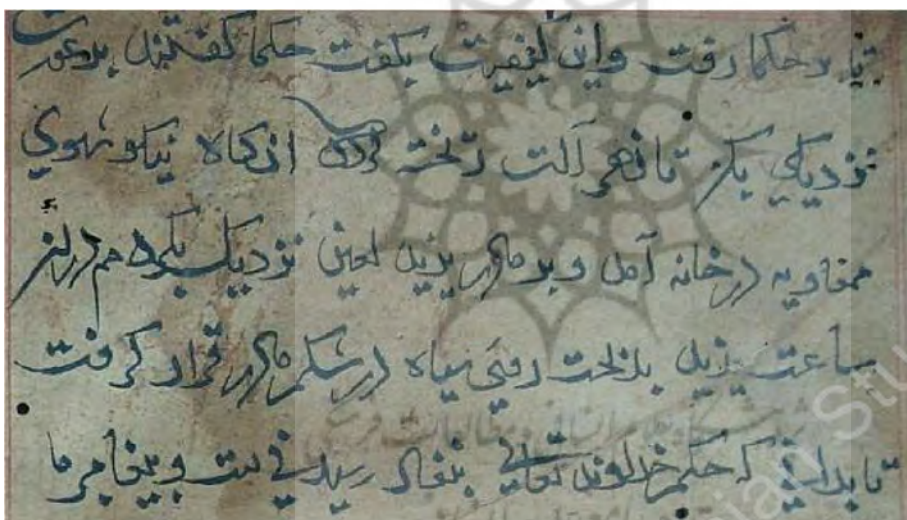 بر حکما رفت واین کیفیت بکفت حکما کفتند بدعورت
نزدیکی بکن تا زهر از آلت ریخته کردد انکاه نیکو شوی
معاویه در خانه آمد وبر مادر یزید لعین نزدیک بکرد هم در آن
ساعت یزید بدبخت سیاه در شکم مادر قرار کرفت
تا بدانی که حکم خداوند تعالی رسیدنی ست و پیغامبر ما